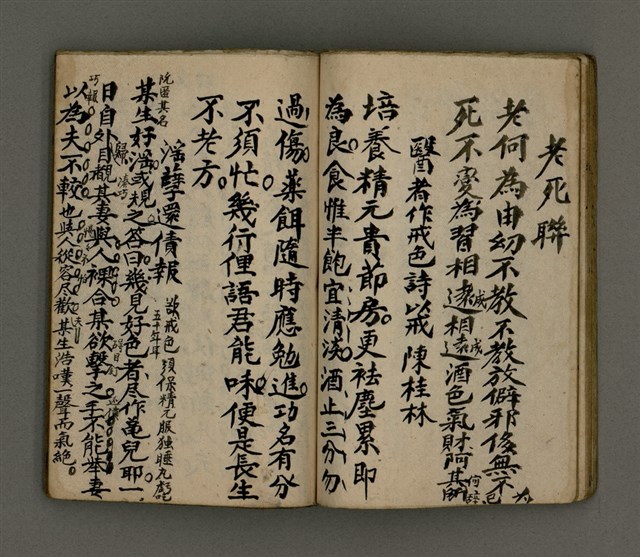 老死聯
老何為由幼不教不教放僻邪侈無不為已
死不變為習相遠成相遠成酒色氣財阿其所
醫者作戒色詩以戒 陳桂林
培養精元貴節房更祛塵累即
為良食惟半飽宜清淡酒止三分勿
過傷藥餌隨時應勉進功名有分
不須忙幾行俚語君能味便是長生
不老方
淫孽還債報 欲戒色須保精元服独睡丸
某生好淫或規之答曰幾見好色者尽作亀兒耶一
日自外目覩其妻與人裸合某欲擊之手不能举妻
以為夫不較也與人從容尽歡某生浩嘆一聲而氣絕